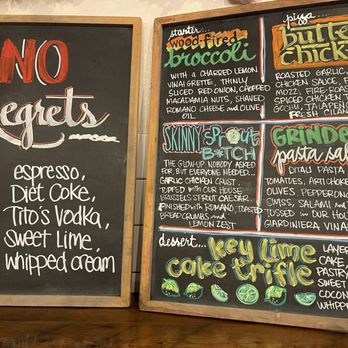 NO
Regrets
espresso,
Diet Coke,
Tito's Vodka,
Sweet Lime,
whipped cream
starter...
wood-fired
broccoli
WITH A CHARRED LEMON
VINAIGRETTE, THINLY
SLICED RED ONION, CHOPPED
MACADAMIA NUTS, SHAVED
ROMANO CHEESE AND OLIVE
OIL
pizza
butter
chicken
ROASTED GARLIC,
CHICKEN SAUCE, F
MOZZ, FIRE ROAST
SPICED CHICKEN T
JALAPEÑO
FRESH CILAN
SKINNY Sprout
B*TCH
THE GLOW-UP NOBODY ASKED
FOR, BUT EVERYONE NEEDED...
GARLIC CHICKEN CRUST
TOPPED WITH OUR HOUSE
BRUSSELS SPROUT CAESAR
FINISHED WITH ROMANO, TOASTED
BREADCRUMBS AND
LEMON ZEST
GRINDER
pasta sala
DITALI PASTA
TOMATES, ARTICHOKE
OLIVES, PEPPERONC
SWISS, SALAMI AND
TOSSED IN OUR HOU
GIARDINIERA VINA
dessert...
key lime
cake trifle
LAYER
CAKE,
PASTRY
SWEET
COCON
WHIPP